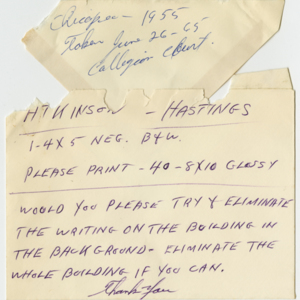 Chicago - 1955
Taken June 26-65
Collegian Court.
ATKINSON - HASTINGS
1-4X5 NEG. B&W.
PLEASE PRINT - 40 - 8X10 GLOSSY
WOULD YOU PLEASE TRY & ELIMINATE
THE WRITING ON THE BUILDING IN
THE BACKGROUND - ELIMINATE THE
WHOLE BUILDING IF YOU CAN.
Thank You